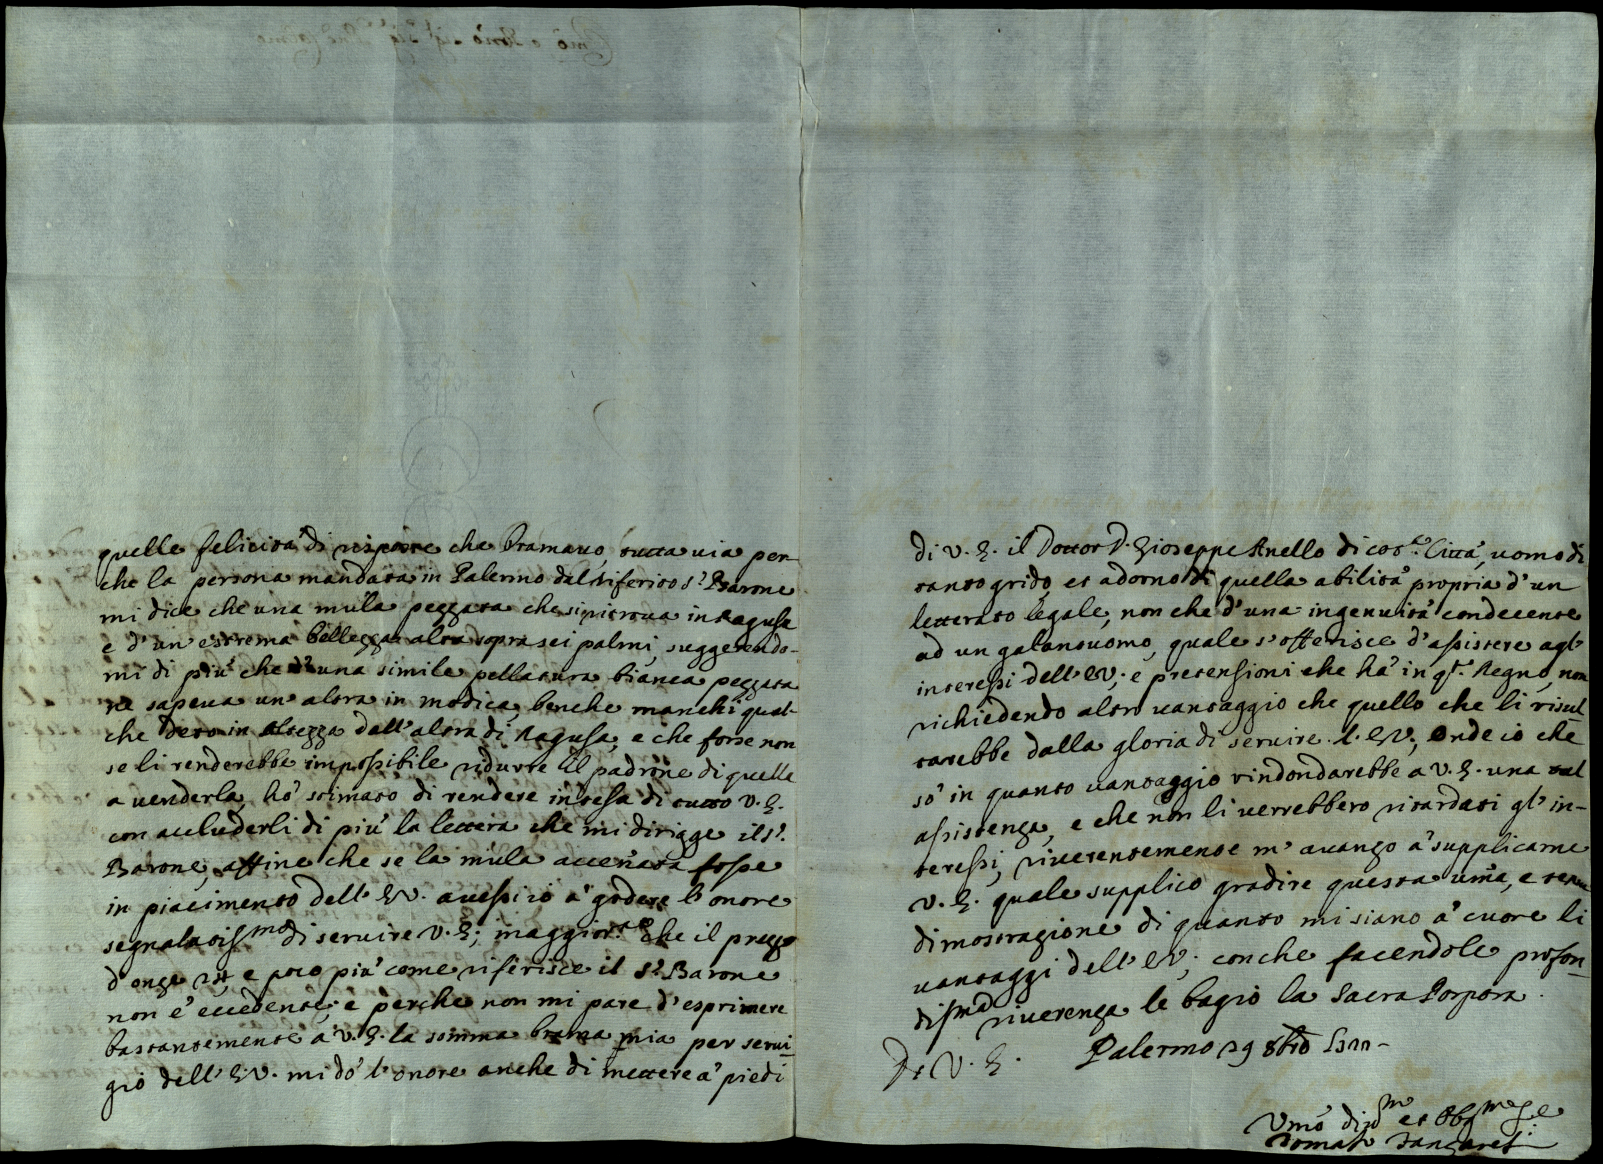 quelle felicità di risposte che bramavo, tutta via per-
che la persona mandata in Palermo dal riferito S.r Barone
mi dice che una mula pezzata che si ritrova in Ragusa
e d'un estrema bellezza alta sopra sei palmi, suggerendo-
mi di più che d'una simile pellatura bianca pezzata
ne sapeva un' altra in Modica, benche manchi qual-
che deto in altezza dall'altra di Ragusa, e che forse non
se li renderebbe impossibile ridurre il padrone di quella
a venderla, hò stimato di rendere intesa di tutto V. E.
con accluderli di più la lettera che mi dirigge il S.r
Barone, affine che se la mula accennata fosse
in piacimento dell' E.V. avessi io à godere l'onore
segnalatiss.mo di servire V. E; maggior.te che il prezzo
d'onze e poco più come riferisce il S.r Barone
non è eccedente; e perche non mi pare d'esprimere
bastantemente à V. E. la somma brama mia per servi-
gio dell' E.V. mi dò l'onore anche di mettere à piedi
di V. E. il Dottor D. Gioseppe Anello di cot.a Città, uomo di
tanto grido, et adorno di quella abilità propria d'un
letterato legale, non che d'una ingenuità condecente
ad un galantuomo, quale s'offerisce d'assistere agl'
interessi dell' E.V; e pretensioni che hà in q.to Regno, non
richiedendo altro vantaggio che quello che li risul-
tarebbe dalla gloria di servire l' E.V; onde io che
sò in quanto vantaggio rindondarebbe a V. E. una tal
assistenza, e che non li verrebbero ritardati gl' in-
teressi, riverentemente m' avanzo à supplicarne
V. E. quale supplico gradire questa um̃a, e tenue
dimostrazione di quanto mi siano à cuore li
vantaggi dell' E.V; con che facendole profon-
diss.ma riverenza le bagio la Sacra Porpora.
Palermo 29 8bre
Di V. E.
Um̃o div.mo et obb.mo Se.